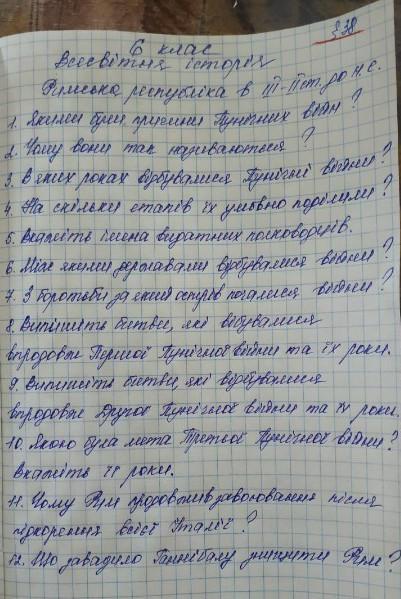 § 38
6 клас
Всесвітня історія
Римська республіка в III-II ст. до н.е.
1. Якими були причини Пунічних війн?
2. Чому вони так називаються?
3. В яких роках відбувалися Пунічні війни?
4. На скільки етапів їх умовно поділили?
5. Вкажіть імена видатних полководців.
6. Між якими державами відбувалися війни?
7. З боротьби за який острів почалися війни?
8. Випишіть битви, які відбувалися
впродовж Першої Пунічної війни та їх роки.
9. Випишіть битви, які відбувалися
впродовж Другої Пунічної війни та їх роки.
10. Якою була мета Третьої Пунічної війни?
Вкажіть її роки.
11. Чому Рим продовжив завоювання після
підкорення всієї Італії?
12. Що завадило Ганнібалу знищити Рим?